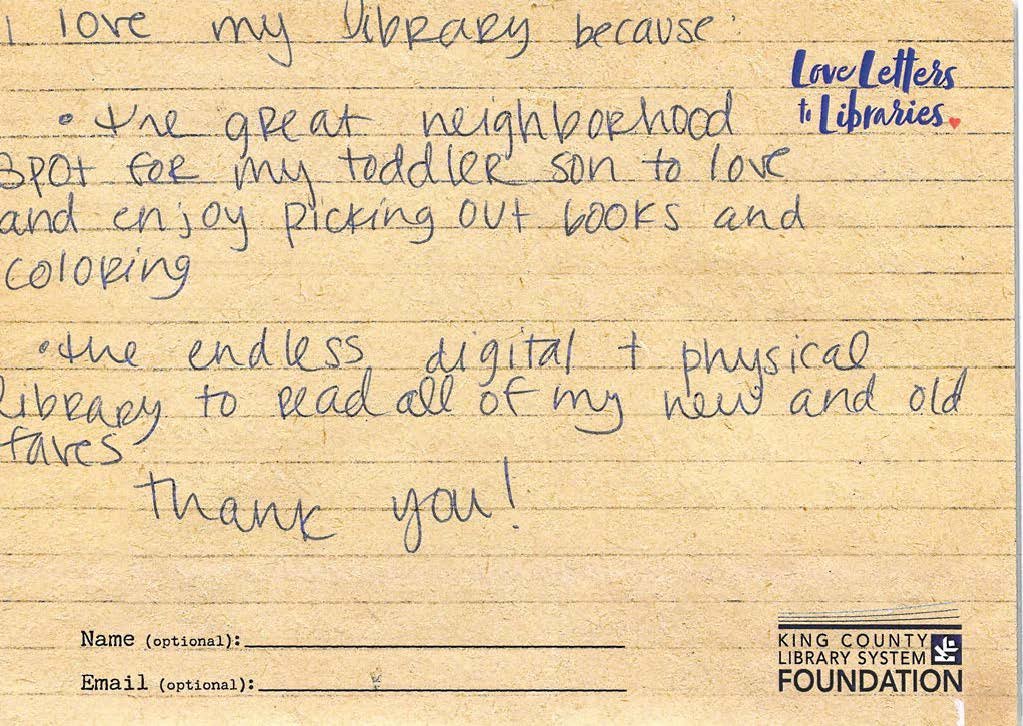 I love my library because:
Love Letters
to Libraries
• the great neighborhood
spot for my toddler son to love
and enjoy picking out books and
coloring
• the endless digital + physical
library to read all of my new and old
faves
Thank you!
Name (optional):
Email (optional):
KING COUNTY
LIBRARY SYSTEM
FOUNDATION